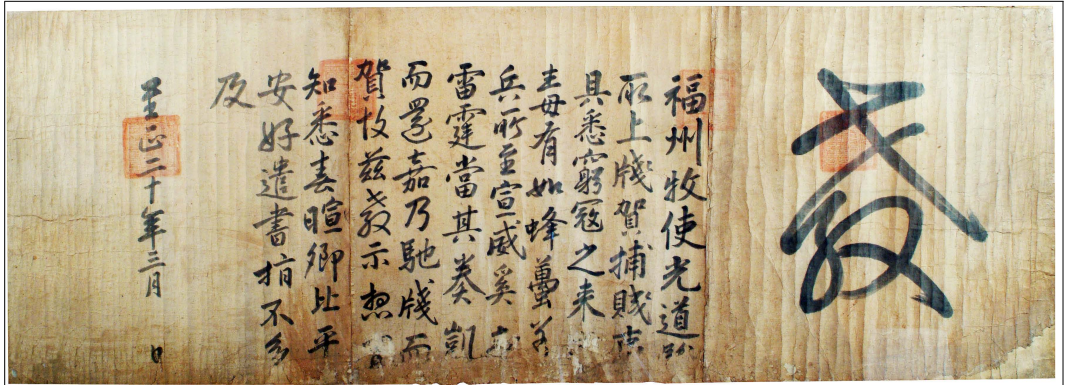 教
福州牧使光道
所上牋賀捕賊
具悉窮寇之来
毒有如蜂蠆
兵所至宣威奚
雷霆當其奏凱
而還嘉乃馳牋而
賀故兹教示想
知悉春暄卿比平
安好遣書指不多
及
至正二十年三月 日